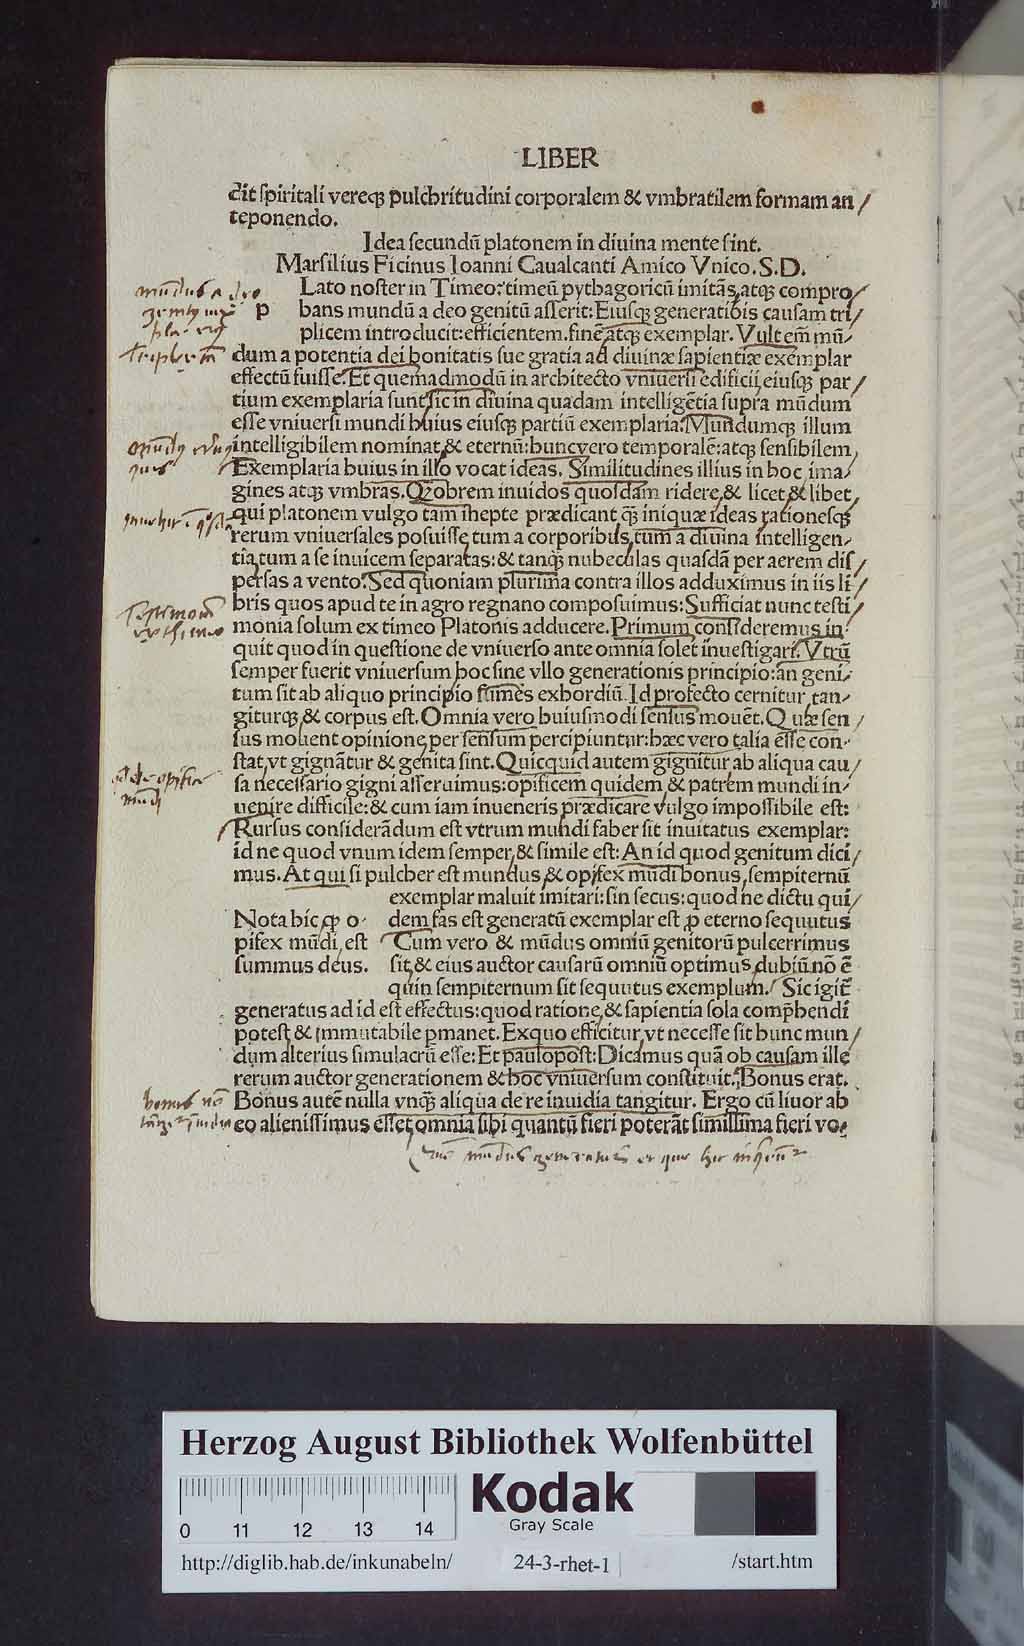 LIBER
cit spiritali vereqꝫ pulchritudini corporalem & vmbratilem formam an/
teponendo.
Idea secundũ platonem in diuina mente sint.
Marsilius Ficinus Ioanni Caualcanti Amico Vnico.S.D.
p
Lato noster in Timeo: timeũ pythagoricũ imitãs, atqꝫ compro/
bans mundũ a deo genitũ asserit: Eiusqꝫ generatiõis causam tri/
plicem introducit: efficientem. finẽ atqꝫ exemplar. Vult em̃ mũ/
dum a potentia dei bonitatis sue gratia ad diuinæ sapientiæ exemplar
effectũ fuisse. Et quemadmodũ in architecto vniuersi edificii, eiusqꝫ par/
tium exemplaria sunt, sic in diuina quadam intelligẽtia supra mũdum
esse vniuersi mundi huius eiusqꝫ partiũ exemplaria. Mundumqꝫ illum
intelligibilem nominat, & eternũ: hunc vero temporalẽ: atqꝫ sensibilem,
Exemplaria huius in illo vocat ideas. Similitudines illius in hoc ima/
gines atqꝫ vmbras. Qꝫobrem inuidos quosdam ridere, & licet, & libet,
qui platonem vulgo tam inepte prædicant qꝫ̃ iniquæ ideas rationesqꝫ
rerum vniuersales posuisse, tum a corporibus, tum a diuina intelligen/
tia, tum a se inuicem separatas: & tanqꝫ̃ nubeculas quasdã per aerem dis/
persas a vento. Sed quoniam plurima contra illos adduximus in iis li/
bris quos apud te in agro regnano composuimus: Sufficiat nunc testi/
monia solum ex timeo Platonis adducere. Primum consideremus in
quit quod in questione de vniuerso ante omnia solet inuestigari. Vtrũ
semper fuerit vniuersum hoc sine vllo generationis principio: an geni/
tum sit ab aliquo principio sumẽs exhordiũ. Id profecto cernitur, tan/
giturqꝫ, & corpus est. Omnia vero huiusmodi sensus mouẽt. Quæ sen/
sus mouent opinione, per sensum percipiuntur: hæc vero talia esse con/
stat, vt gignãtur & genita sint. Quicquid autem gignitur ab aliqua cau/
sa necessario gigni asseruimus: opificem quidem & patrem mundi in/
uenire difficile: & cum iam inueneris prædicare vulgo impossibile est:
Rursus considerãdum est vtrum mundi faber sit inuitatus exemplar:
id ne quod vnum idem semper, & simile est: An id quod genitum dici/
mus. At qui si pulcher est mundus, & opifex mũdi bonus, sempiternũ
exemplar maluit imitari: sin secus: quod ne dictu qui/
dem fas est generatũ exemplar est ꝓ eterno sequutus
Cum vero & mũdus omniũ genitorũ pulcerrimus
sit, & eius auctor causarũ omniũ optimus, dubiũ nõ ẽ
quin sempiternum sit sequutus exemplum. Sic igit̃
Nota hic ꝙ o/
pifex mũdi, est
summus deus.
generatus ad id est effectus: quod ratione, & sapientia sola comp̃hendi
potest, & immutabile ꝑmanet. Exquo efficitur, vt necesse sit hunc mun/
dum alterius simulacrũ esse: Et paulopost: Dicamus quã ob causam ille
rerum auctor generationem & hoc vniuersum constituit. Bonus erat.
Bonus autẽ nulla vnqꝫ̃ aliqua de re inuidia tangitur. Ergo cũ liuor ab
eo alienissimus esset, omnia sibi quantũ fieri poterãt simillima fieri vo/
Herzog August Bibliothek Wolfenbüttel
0 11 12 13 14
Kodak
Gray Scale
http://diglib.hab.de/inkunabeln/ 24-3-rhet-1 /start.htm